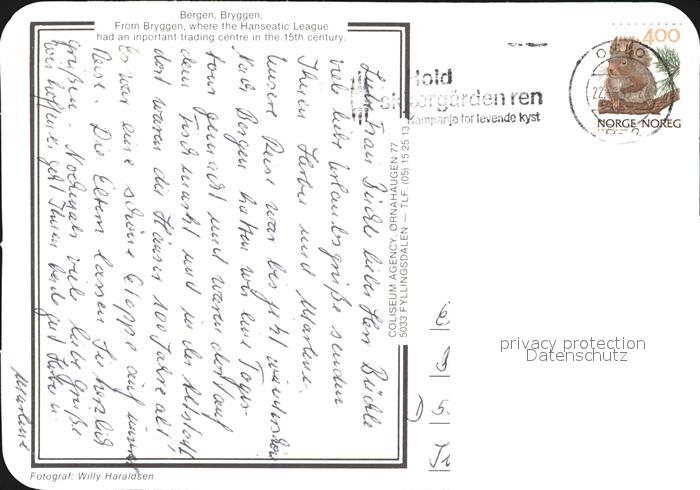 Bergen, Bryggen.
From Bryggen, where the Hanseatic League
had an inportant trading centre in the 15th century.
Liebe Frau Büchle lieber Herr Büchle
viele liebe Urlaubsgrüße senden
Ihnen Herbert und Marlene.
Unsere Reise war bis jetzt wunderschön
Nach Bergen hatten wir eine Tages-
tour gemacht und waren dort auf
dem Fischmarkt und in der Altstadt
dort waren die Häuser 100 Jahre alt,
Es war eine schöne Etappe auf unserer
Reise. Die Eltern lassen Sie herzlich
grüßen. Nochmals viele liebe Grüße
Wir hoffen es geht Ihnen beide gut Herbert u.
Marlene
COLISEUM AGENCY, ØRNAHAUGEN 77
5033 FYLLINGSDALEN — TLF. (05) 15 25 13
Hold
skjærgården ren
Kampanje for levende kyst
OSLO
22
400
NORGE NOREG
D 5
privacy protection
Datenschutz
Fotograf: Willy Haraldsen